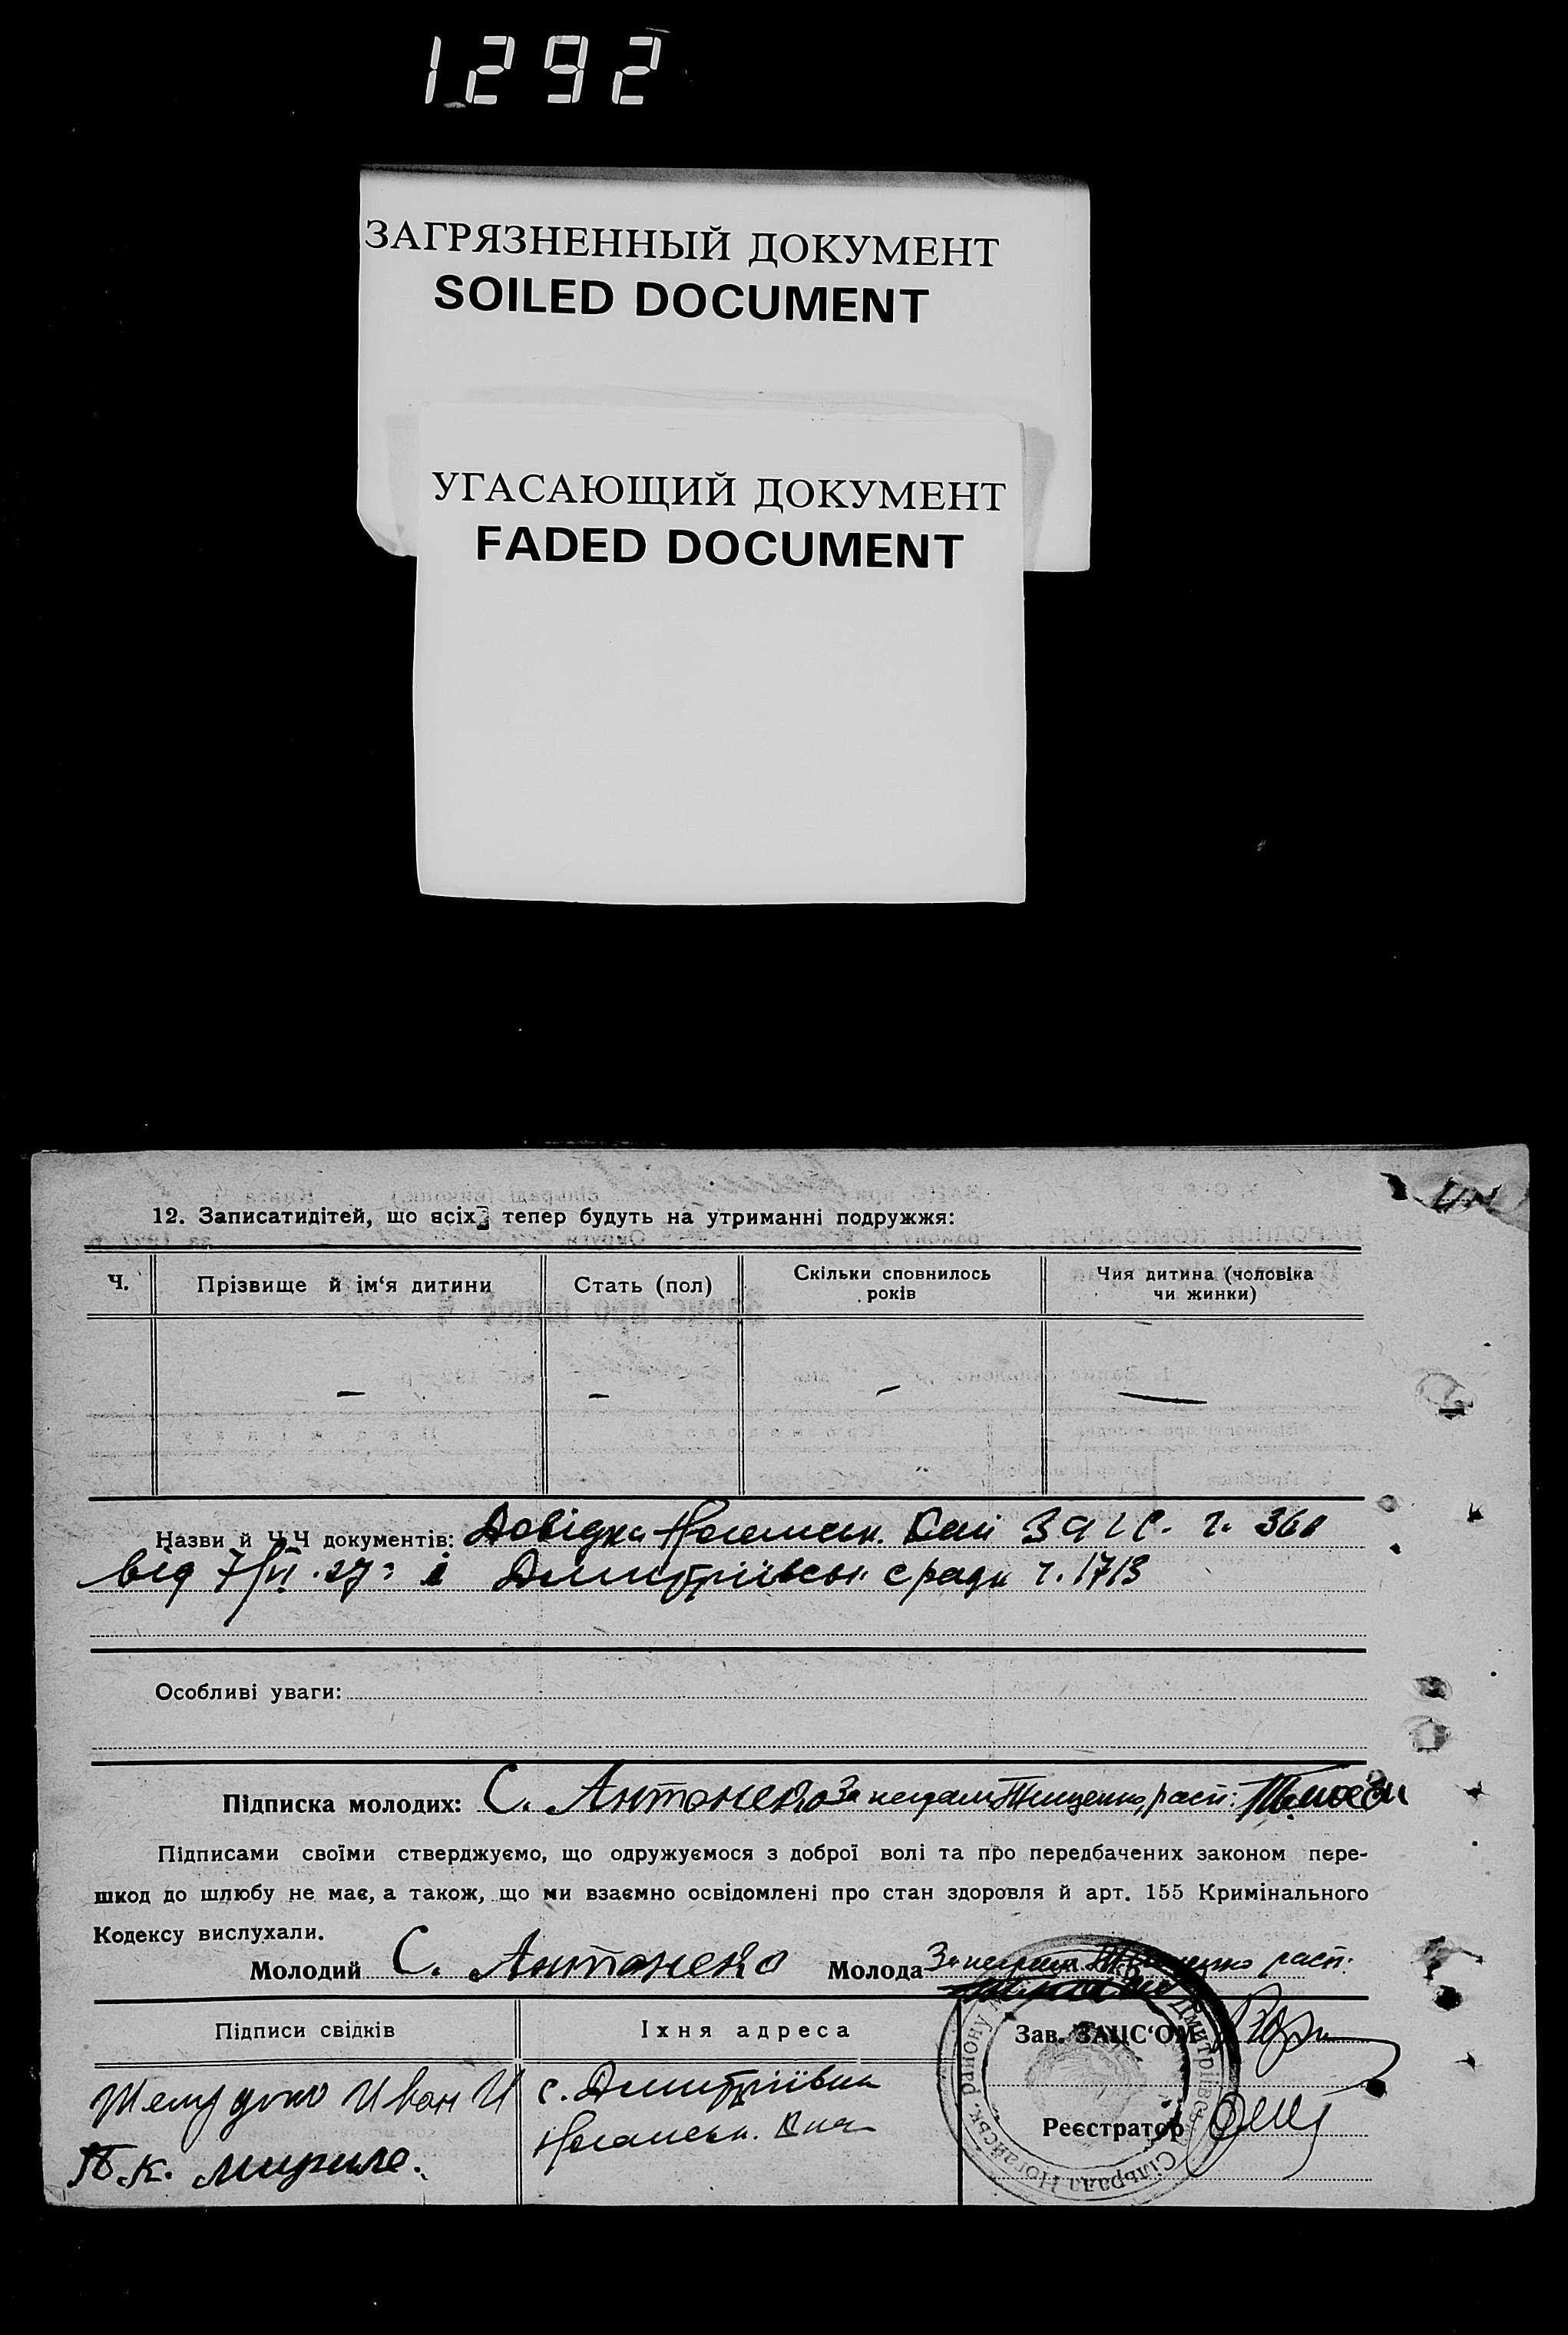 1292
ЗАГРЯЗНЕННЫЙ ДОКУМЕНТ
SOILED DOCUMENT
УГАСАЮЩИЙ ДОКУМЕНТ
FADED DOCUMENT
12. Записатидітей, що всіх тепер будуть на утриманні подружжя:
Ч. Прізвище й ім‘я дитини Стать (пол) Скільки сповнилось років Чия дитина (чоловіка чи жинки)
— — — —
Назви й Ч.Ч документів: Довідка Ногайськ. ЗАГС. ч. 366
від 7/VI.27 і Дмитріївськ. с ради ч. 1713
Особливі уваги:
Підписка молодих: С. Антоненко За неграм Тищенко, расп:
Підписами своїми стверджуємо, що одружуємося з доброї волі та про передбачених законом пере-
шкод до шлюбу не має, а також, що ми взаємно освідомлені про стан здоровля й арт. 155 Кримінального
Кодексу вислухали.
Молодий С. Антоненко Молода За неграм расп.
Підписи свідків Їхня адреса Зав. ЗАЦС‘ОМ
Иван И с. Дмитріївка
Т.К. Ногайськ.
Реєстратор
Сільрада Ногайськ. району